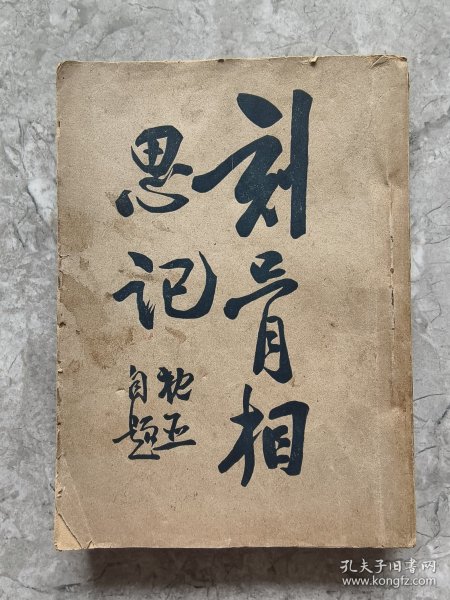 刻骨相
思记
枕亚
自题
孔夫子旧书网
www.kongfz.com